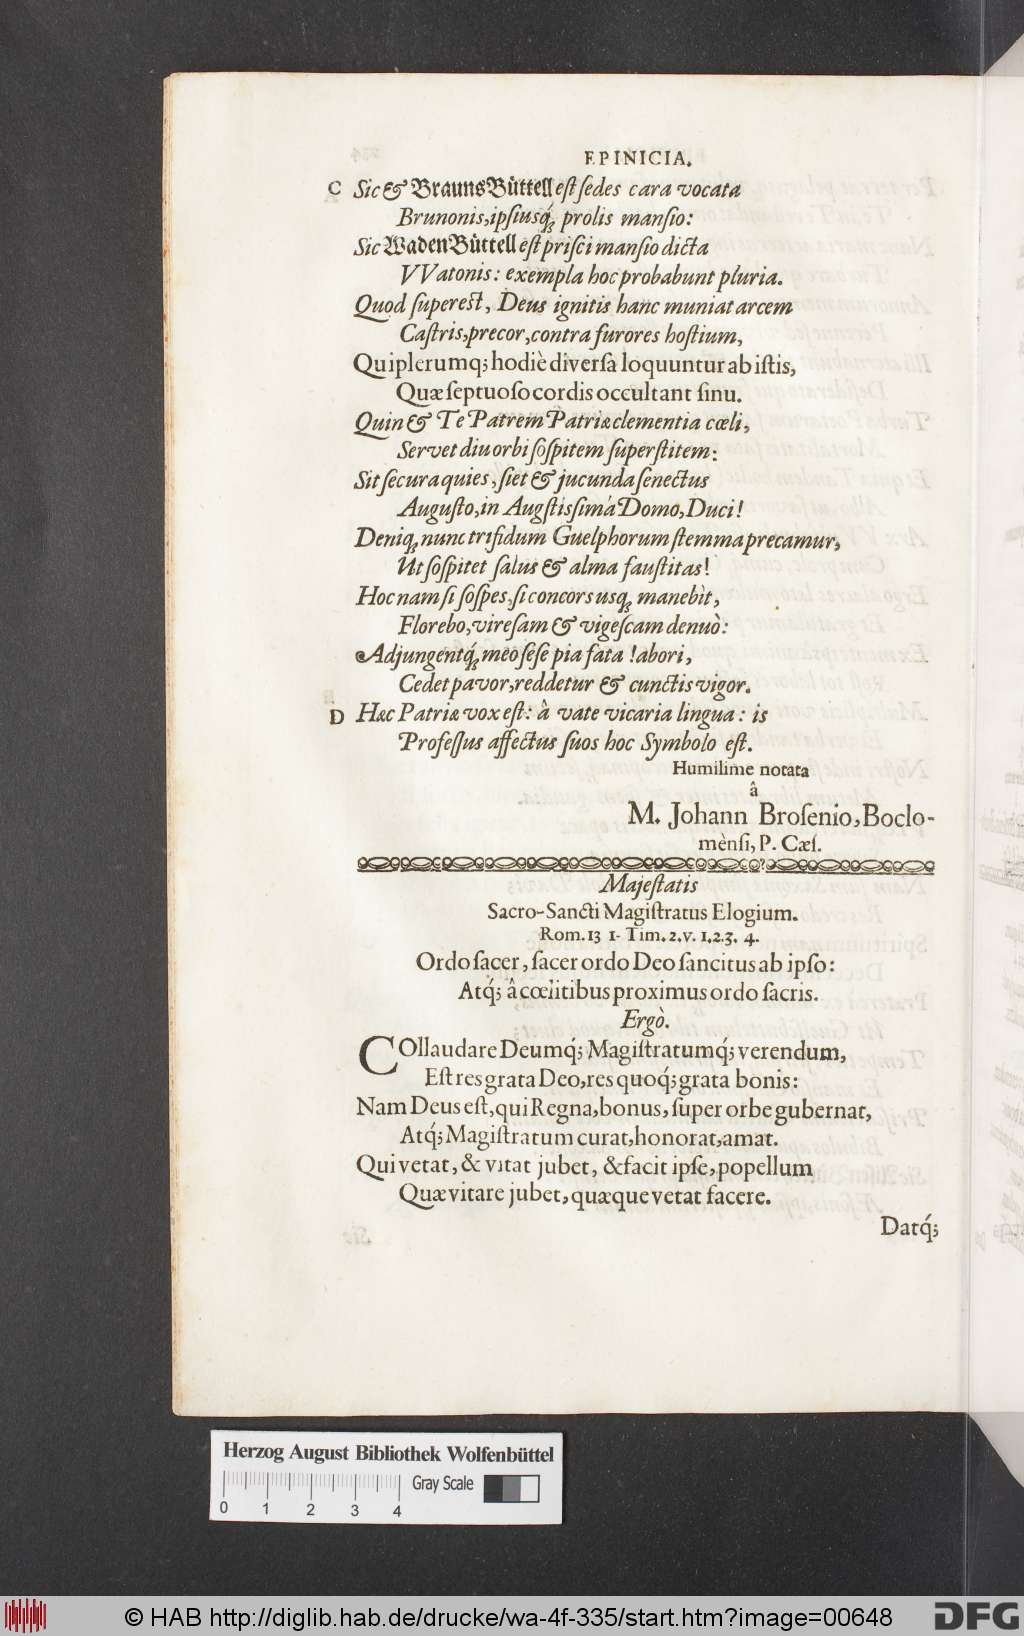 EPINICIA.
C Sic & BraunsBüttell est sedes cara vocata
Brunonis, ipsiusq́ꝫ prolis mansio:
Sic WadenBüttell est prisci mansio dicta
VVatonis: exempla hoc probabunt pluria.
Quod superest, Deus ignitis hanc muniat arcem
Castris, precor, contra furores hostium,
Qui plerumq; hodiè diversa loquuntur ab istis,
Quæ septuoso cordis occultant sinu.
Quin & Te Patrem Patriæ clementia cœli,
Servet diu orbi sospitem superstitem:
Sit secura quies, siet & jucunda senectus
Augusto, in Augstissimâ Domo, Duci!
Deniqꝫ nunc trifidum Guelphorum stemma precamur,
Ut sospitet salus & alma faustitas!
Hoc nam si sospes, si concors usqꝫ manebit,
Florebo, viresam & vigescam denuò:
Adjungentq́ꝫ meo sese pia fata !abori,
Cedet pavor, reddetur & cunctis vigor.
D Hæc Patriæ vox est: â vate vicaria lingua: is
Professus affectus suos hoc Symbolo est.
Humilime notata
â
M. Johann Brosenio, Boclo-
mènsi, P. Cæs.
Majestatis
Sacro-Sancti Magistratus Elogium.
Rom. 13 1. Tim. 2. v. 1. 2. 3. 4.
Ordo sacer, sacer ordo Deo sancitus ab ipso:
Atq́; â cœlitibus proximus ordo sacris.
Ergò.
COllaudare Deumq́; Magistratumq́; verendum,
Est res grata Deo, res quoq́; grata bonis:
Nam Deus est, qui Regna, bonus, super orbe gubernat,
Atq́; Magistratum curat, honorat, amat.
Qui vetat, & vitat jubet, & facit ipse, popellum
Quæ vitare jubet, quæque vetat facere.
Datq́;
Herzog August Bibliothek Wolfenbüttel
Gray Scale
0 1 2 3 4
© HAB http://diglib.hab.de/drucke/wa-4f-335/start.htm?image=00648
DFG